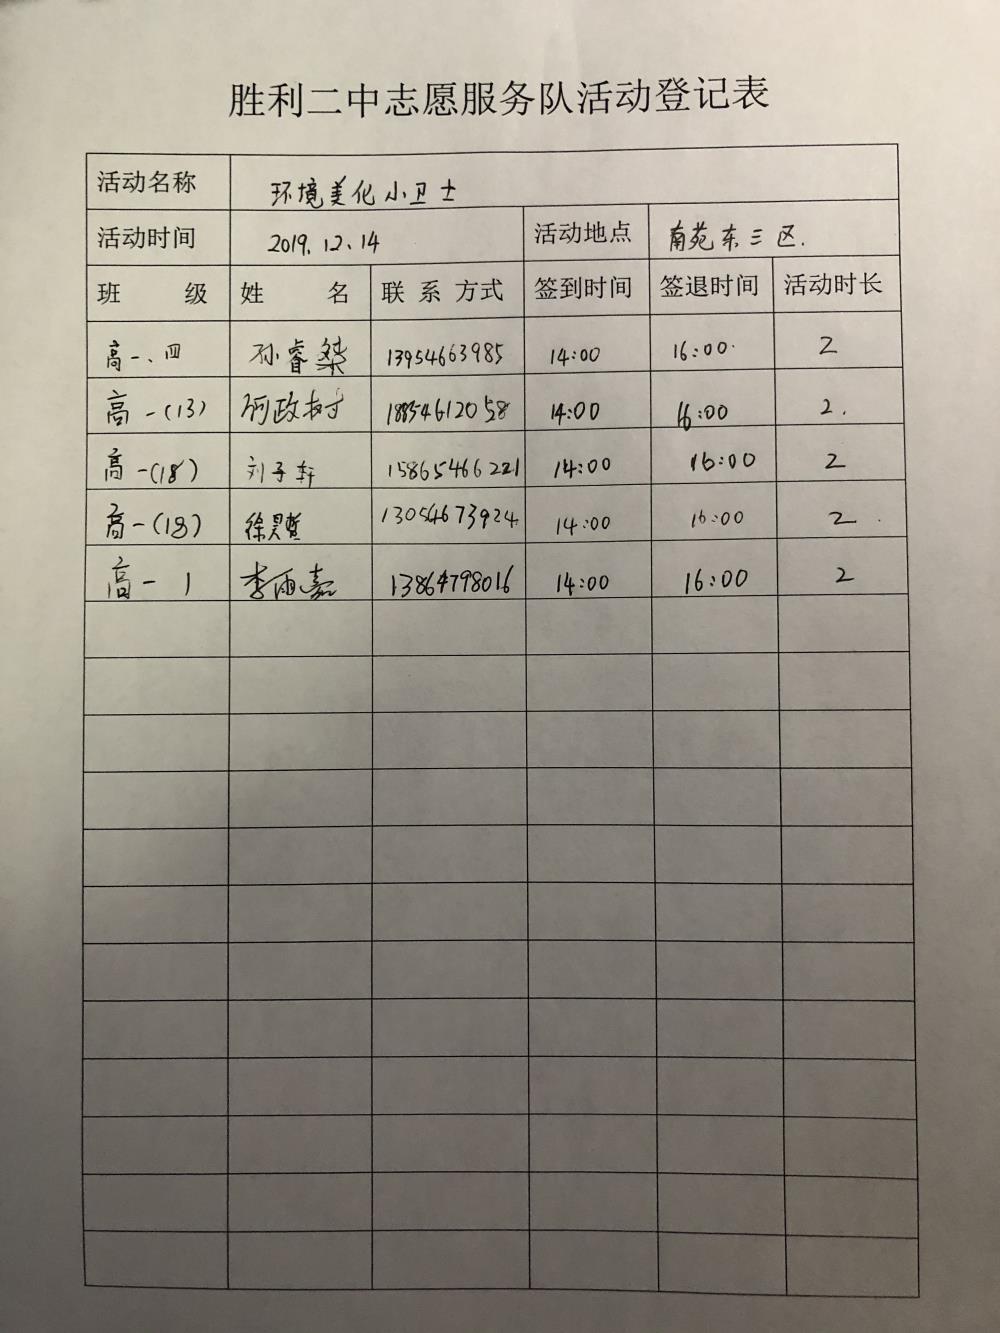 胜利二中志愿服务队活动登记表
活动名称 环境美化小卫士
活动时间 2019.12.14 活动地点 南苑东三区.
班 级 姓 名 联系方式 签到时间 签退时间 活动时长
高一、四 孙睿桀 13954663985 14:00 16:00. 2
高一(13) 政树 18854612058 14:00 16:00 2.
高一(18) 刘子轩 15865466221 14:00 16:00 2
高一(18) 徐昊哲 13054673924 14:00 16:00 2.
高一 1 李雨嘉 13864798016 14:00 16:00 2